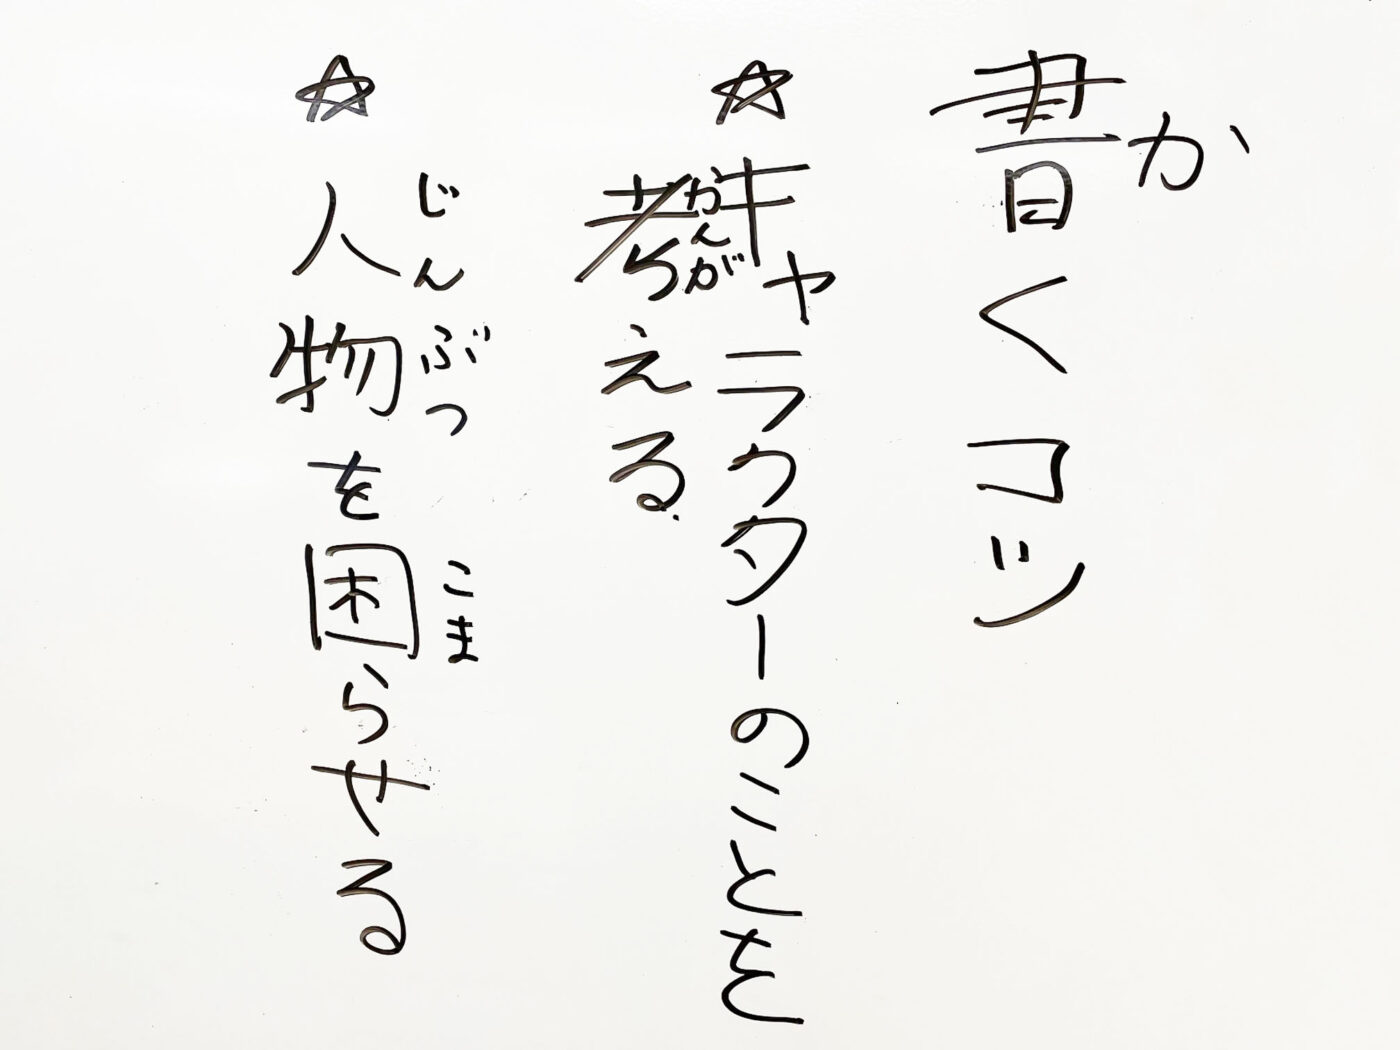 書くコツ
か
☆キャラクターのことを
考える
かんが
☆人物を困らせる
じんぶつ
こま